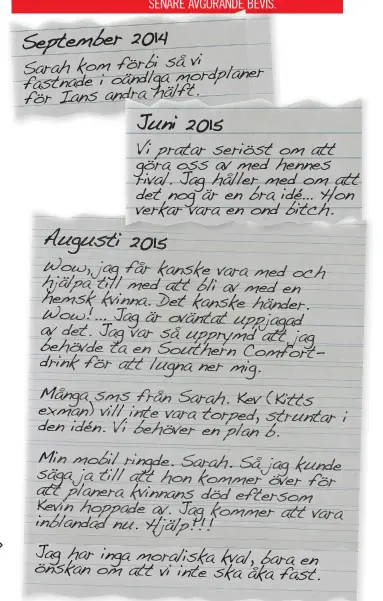 SENARE AVGÖRANDE BEVIS.
September 2014
Sarah kom förbi så vi
fastnade i oändliga mordplaner
för Ians andra hälft.
Juni 2015
Vi pratar seriöst om att
göra oss av med hennes
rival. Jag håller med om att
det nog är en bra idé... Hon
verkar vara en ond bitch.
Augusti 2015
Wow, jag får kanske vara med och
hjälpa till med att bli av med en
hemsk kvinna. Det kanske händer.
Wow!... Jag är oväntat uppjagad
av det. Jag var så upprymd att jag
behövde ta en Southern Comfort-
drink för att lugna ner mig.
Många sms från Sarah. Kev (Kitts
exman) vill inte vara torped, struntar i
den idén. Vi behöver en plan b.
Min mobil ringde. Sarah. Så jag kunde
säga ja till att hon kommer över för
att planera kvinnans död eftersom
Kevin hoppade av. Jag kommer att vara
inblandad nu. Hjälp!!!
Jag har inga moraliska kval, bara en
önskan om att vi inte ska åka fast.